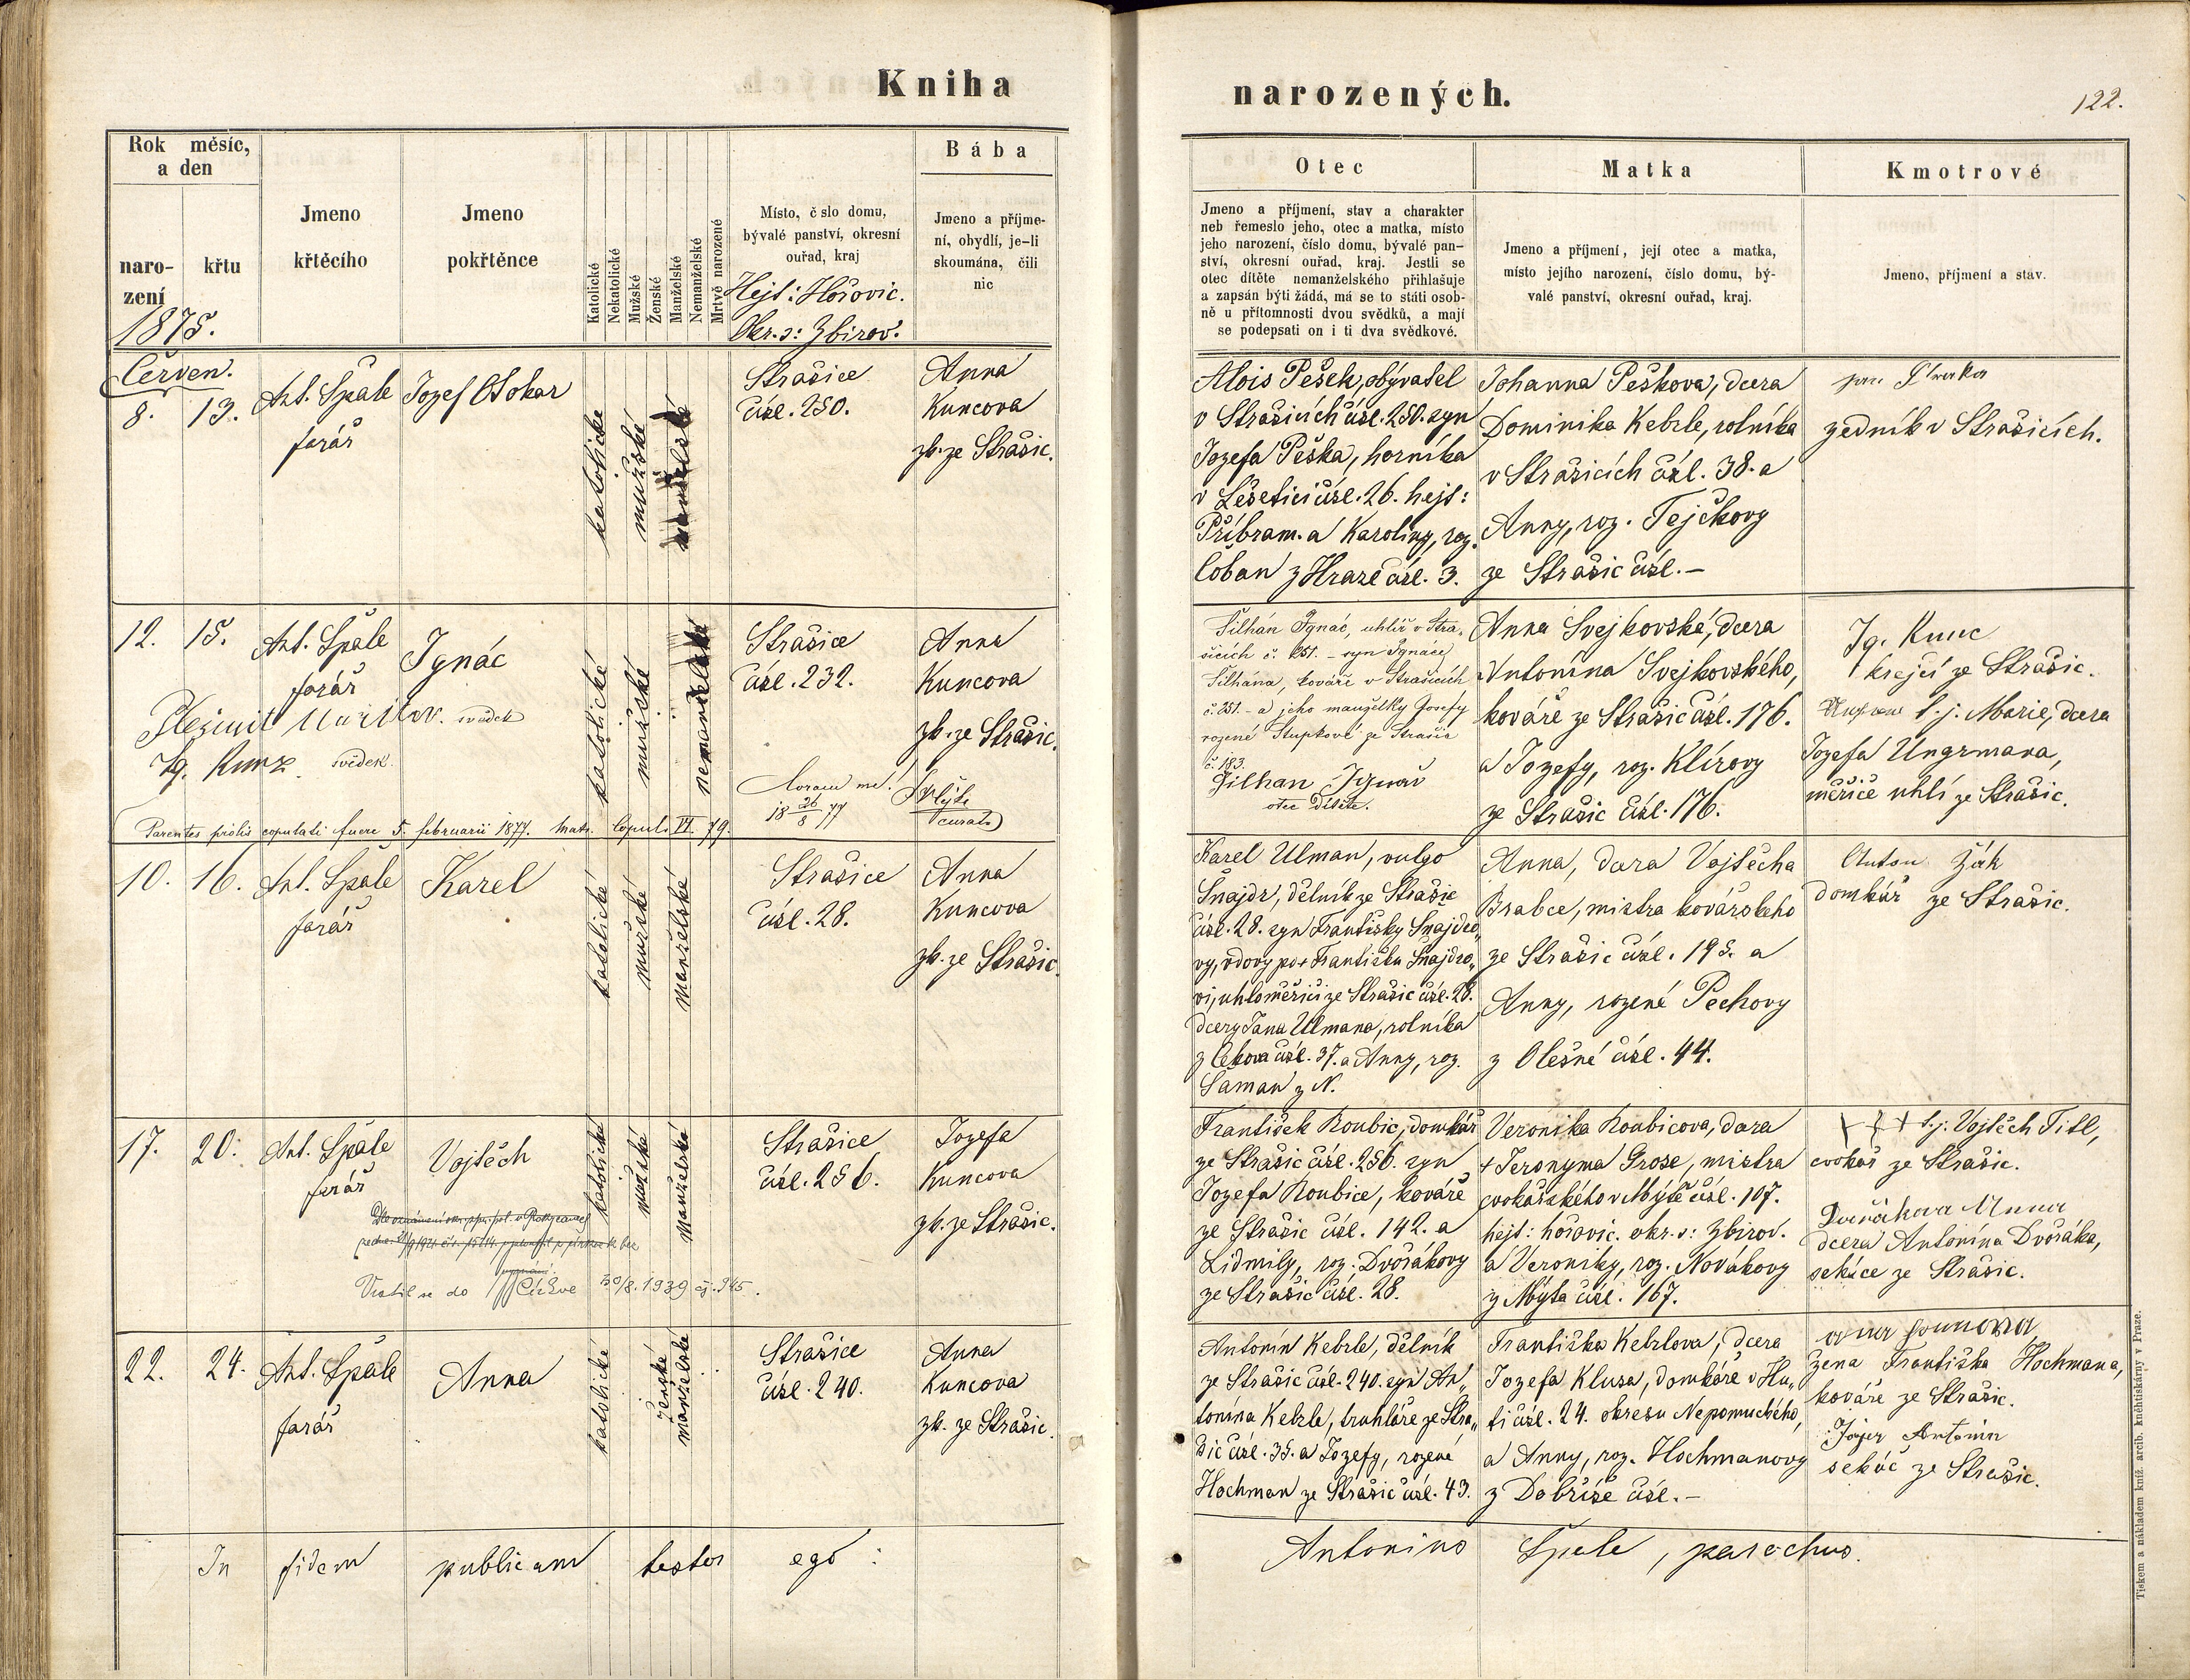 Kniha
narozených.
122.
Rok měsíc,
a den
naro-
zení
křtu
1875.
Jmeno
křtěcího
Jmeno
pokřtěnce
Katolické
Nekatolické
Mužské
Ženské
Manželské
Nemanželské
Mrtvě narozené
Místo, č slo domu,
bývalé panství, okresní
ouřad, kraj
Hejt: Hořovic.
Okr. s: Zbirov.
Bába
Jmeno a příjme-
ní, obydlí, je-li
skoumána, čili
nic
Otec
Jmeno a příjmení, stav a charakter
neb řemeslo jeho, otec a matka, místo
jeho narození, číslo domu, bývalé pan-
ství, okresní ouřad, kraj. Jestli se
otec dítěte nemanželského přihlašuje
a zapsán býti žádá, má se to státi osob-
ně u přítomnosti dvou svědků, a mají
se podepsati on i ti dva svědkové.
Matka
Jmeno a příjmení, její otec a matka,
místo jejího narození, číslo domu, bý-
valé panství, okresní ouřad, kraj.
Kmotrové
Jmeno, příjmení a stav.
Červen.
8. 13.
Ant. Spále
farář
Jozef Otokar
katolické
mužské
manželské
Strašice
čísl. 250.
Anna
Kuncova
zk. ze Strašic.
Alois Pešek, obyvatel
v Strašicích čísl. 250. syn
Jozefa Peška, horníka
v Lešetici čísl. 26. hejt:
Příbram. a Karoliny, roz.
Čoban z Hrazé čísl. 3.
Johanna Peškova, dcera
Dominika Kebrle, rolníka
v Strašicích čísl. 38. a
Anny, roz. Tejčkovy
ze Strašic čísl. —
zedník v Strašicích.
12. 15.
Ant. Spále
farář
Ignác
svědek
Ig. Kunz svědek.
katolické
mužské
nemanželské
Strašice
čísl. 232.
Anna
Kuncova
zk. ze Strašic.
Coram me!
18 26/8 77
Parentes prolis copulati fuere 5. februarii 1877. Matr. Copul. VI. 79.
Šilhán Ignác, uhlíř v Stra-
šicích č. 251. – syn Ignace
Šilhána, kováře v Strašicích
č. 251. – a jeho manželky Josefy
rozené Stupkové ze Strašic
č. 183.
Šilhan Ignac
otec dítěte.
Anna Svejkovská, dcera
Antonína Svejkovského,
kováře ze Strašic čísl. 176.
a Jozefy, roz. Klírovy
ze Strašic čísl. 176.
Ig. Kunc
krejčí ze Strašic.
t. j. Marie, dcera
Jozefa Ungrmana,
měřiče uhlí ze Strašic.
10. 16.
Ant. Spále
farář
Karel
katolické
mužské
manželské
Strašice
čísl. 28.
Anna
Kuncova
zk. ze Strašic.
Karel Ulman, vulgo
Šnajdr, dělník ze Strašic
čísl. 28. syn Františky Šnajdro„
vy, vdovy po † Františku Šnajdro„
vi, uhloměřiči ze Strašic čísl. 28.
dcery Jana Ulmana, rolníka
z Cekova čísl. 37. a Anny, roz.
Šaman z N.
Anna, dcera Vojtěcha
Brabce, mistra kovářského
ze Strašic čísl. 195. a
Anny, rozené Pechovy
z Olešné čísl. 44.
Anton Žák
domkář ze Strašic.
17. 20.
Ant. Spále
farář
Vojtěch
katolické
mužské
manželské
Vrátil se do Církve 30/8. 1939 čj. 945.
Strašice
čísl. 256.
Jozefa
Kuncova
zk. ze Strašic.
František Roubic, domkář
ze Strašic čísl. 256. syn
Jozefa Roubice, kováře
ze Strašic čísl. 142. a
Lidmily, roz. Dvořákovy
ze Strašic čísl. 28.
Veronika Roubicova, dcera
† Jeronyma Grose, mistra
cvokařského v Mýtě čísl. 107.
hejt: hořovic. okr. s: Zbirov.
a Veroniky, roz. Novákovy
z Mýta čísl. 167.
††† t. j: Vojtěch Titl,
cvokař ze Strašic.
Dvořákova Anna
dcera Antonína Dvořáka,
sekáče ze Strašic.
22. 24.
Ant. Spále
farář
Anna
katolické
ženské
manželské
Strašice
čísl. 240.
Anna
Kuncova
zk. ze Strašic.
Antonín Kebrle, dělník
ze Strašic čísl. 240. syn An„
tonína Kebrle, truhláře ze Stra„
šic čísl. 35. a Jozefy, rozené
Hochman ze Strašic čísl. 43.
Františka Kebrlova, dcera
Jozefa Klusa, domkáře v Hu„
ti čísl. 24. okresu Nepomuckého,
a Anny, roz. Hochmanovy
z Dobříše čísl. —
žena Františka Hochmana,
kováře ze Strašic.
Antonín
sekáč ze Strašic.
In fidem publicam testor ego:
Antonius Spále, parochus.
Tiskem a nákladem kníž. arcib. knehtiskárny v Praze.